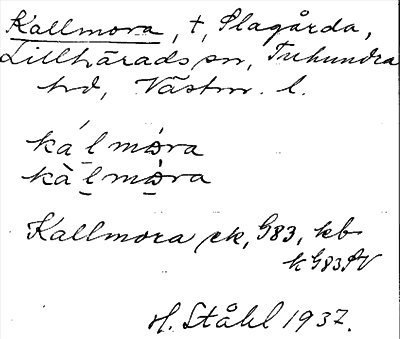 Kallmora, †, Slagårda,
Lillhärads sn, Tuhundra
hd, Västm. l.
ká l̠ mȯra
kà l̠ mò̠ra
Kallmora ek, G83, kb
k G83 AV
H. Ståhl 1937.